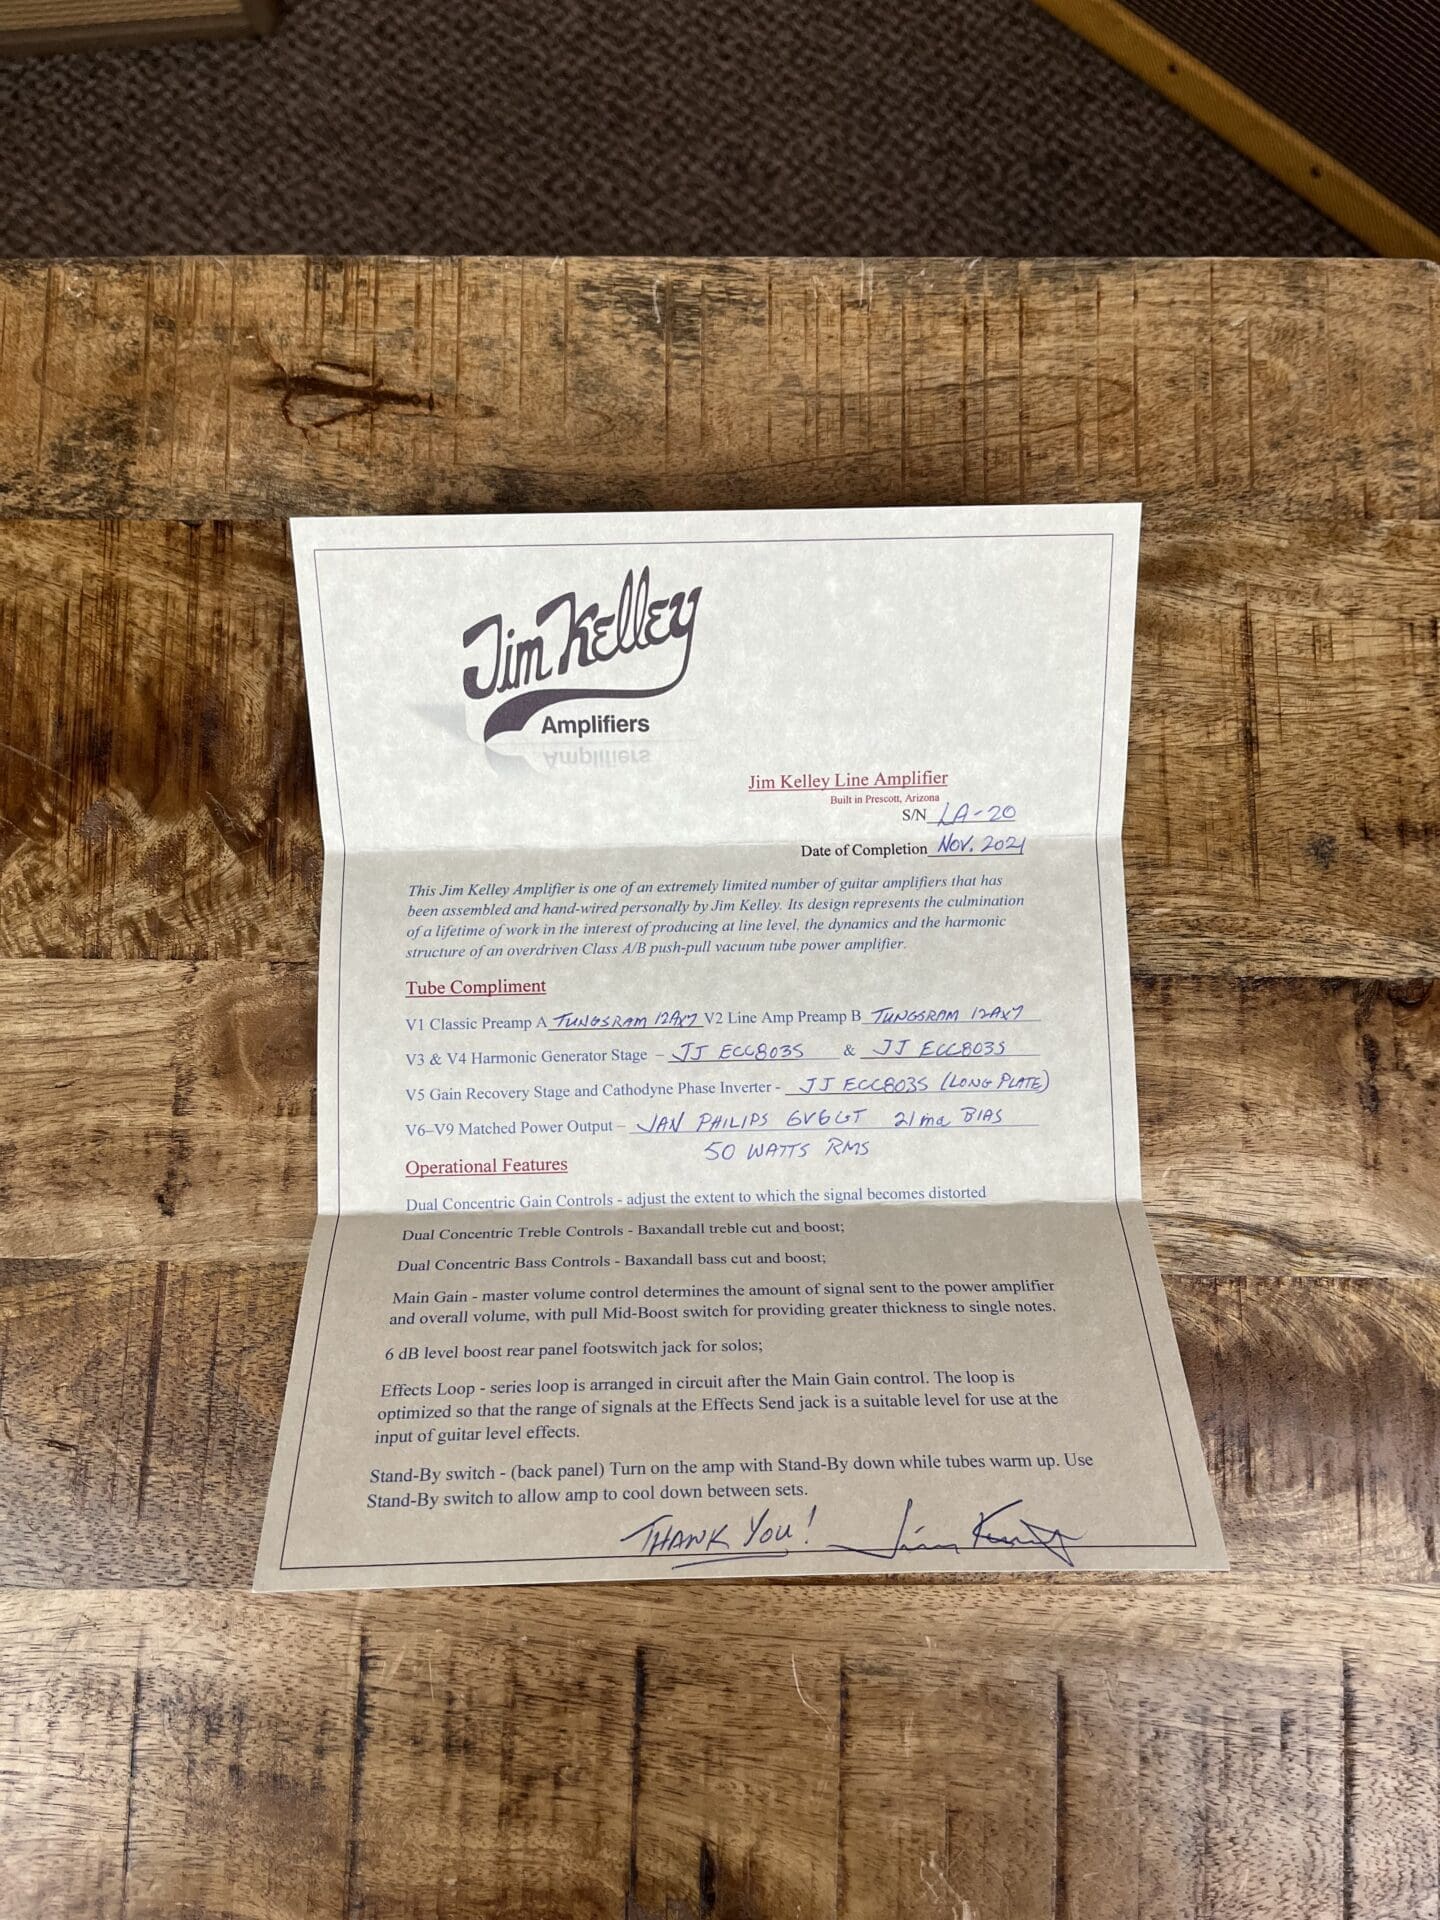 Jim Kelley
Amplifiers
Jim Kelley Line Amplifier
Built in Prescott, Arizona
S/N LA-20
Date of Completion NOV. 2021
This Jim Kelley Amplifier is one of an extremely limited number of guitar amplifiers that has
been assembled and hand-wired personally by Jim Kelley. Its design represents the culmination
of a lifetime of work in the interest of producing at line level, the dynamics and the harmonic
structure of an overdriven Class A/B push-pull vacuum tube power amplifier.
Tube Compliment
V1 Classic Preamp A TUNGSRAM 12AX7 V2 Line Amp Preamp B TUNGSRAM 12AX7
V3 & V4 Harmonic Generator Stage – JJ ECC803S & JJ ECC803S
V5 Gain Recovery Stage and Cathodyne Phase Inverter - JJ ECC803S (LONG PLATE)
V6–V9 Matched Power Output – JAN PHILIPS 6V6GT 21ma BIAS
50 WATTS RMS
Operational Features
Dual Concentric Gain Controls - adjust the extent to which the signal becomes distorted
Dual Concentric Treble Controls - Baxandall treble cut and boost;
Dual Concentric Bass Controls - Baxandall bass cut and boost;
Main Gain - master volume control determines the amount of signal sent to the power amplifier
and overall volume, with pull Mid-Boost switch for providing greater thickness to single notes.
6 dB level boost rear panel footswitch jack for solos;
Effects Loop - series loop is arranged in circuit after the Main Gain control. The loop is
optimized so that the range of signals at the Effects Send jack is a suitable level for use at the
input of guitar level effects.
Stand-By switch - (back panel) Turn on the amp with Stand-By down while tubes warm up. Use
Stand-By switch to allow amp to cool down between sets.
THANK YOU! Jim Kelley